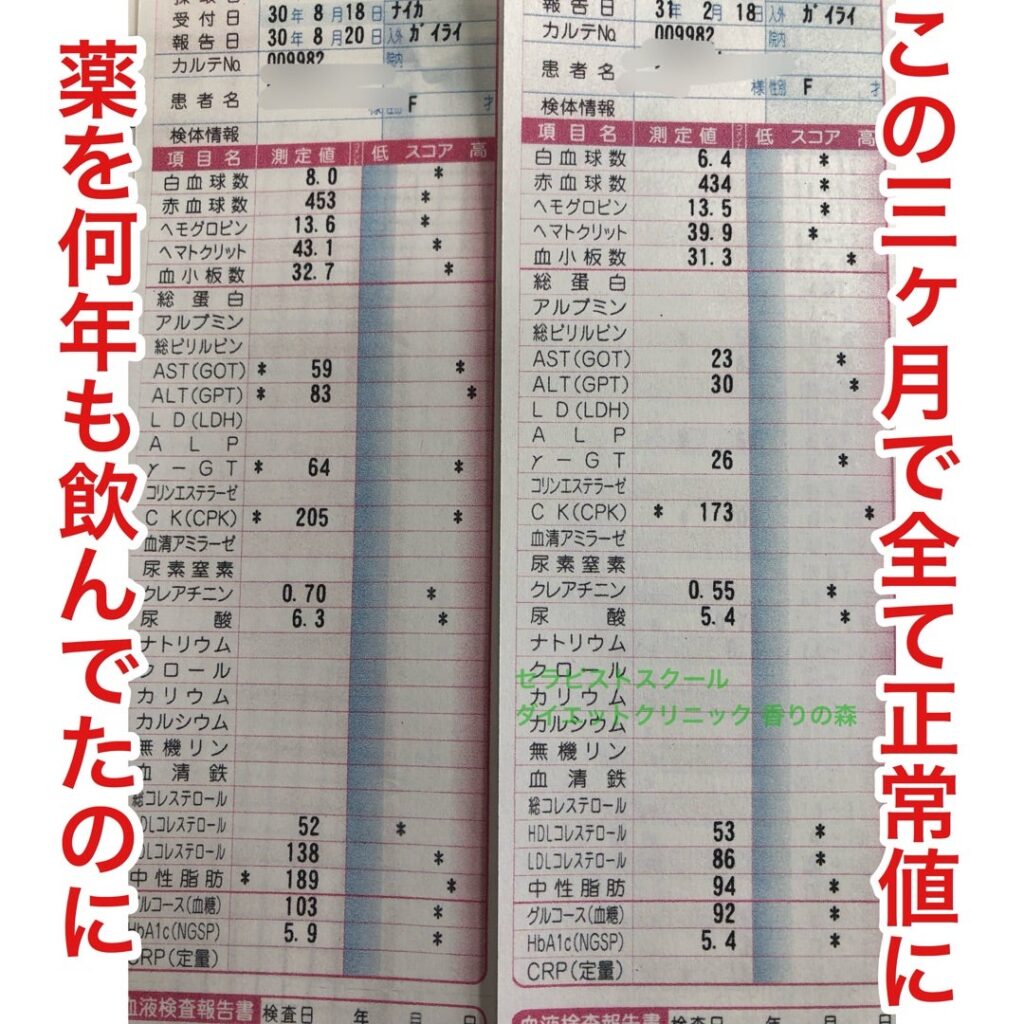 薬を何年も飲んでたのに
受付日 30年 8月18日 ナイカ
報告日 30年 8月20日 入外 ガイライ
カルテNo. 009982 院内
患者名 様 性別 F 才
検体情報
項目名 測定値 低 スコア 高
白血球数 8.0 *
赤血球数 453 *
ヘモグロビン 13.6 *
ヘマトクリット 43.1 *
血小板数 32.7 *
総蛋白
アルブミン
総ビリルビン
AST(GOT) * 59 *
ALT(GPT) * 83 *
LD(LDH)
ALP
γ-GT * 64 *
コリンエステラーゼ
CK(CPK) * 205 *
血清アミラーゼ
尿素窒素
クレアチニン 0.70 *
尿酸 6.3 *
ナトリウム
クロール
カリウム
カルシウム
無機リン
血清鉄
総コレステロール
HDLコレステロール 52 *
LDLコレステロール 138 *
中性脂肪 * 189 *
グルコース(血糖) 103 *
HbA1c(NGSP) 5.9 *
CRP(定量)
血液検査報告書 検査日 年 月 日
報告日 31年 2月 18日 入外 ガイライ
カルテNo. 009982 院内
患者名 様 性別 F 才
検体情報
項目名 測定値 低 スコア 高
白血球数 6.4 *
赤血球数 434 *
ヘモグロビン 13.5 *
ヘマトクリット 39.9 *
血小板数 31.3 *
総蛋白
アルブミン
総ビリルビン
AST(GOT) 23 *
ALT(GPT) 30 *
LD(LDH)
ALP
γ-GT 26 *
コリンエステラーゼ
CK(CPK) * 173 *
血清アミラーゼ
尿素窒素
クレアチニン 0.55 *
尿酸 5.4 *
ナトリウム
クロール
セラピストスクール
カリウム
ダイエットクリニック 香りの森
カルシウム
無機リン
血清鉄
総コレステロール
HDLコレステロール 53 *
LDLコレステロール 86 *
中性脂肪 94 *
グルコース(血糖) 92 *
HbA1c(NGSP) 5.4 *
CRP(定量)
血液検査報告書 検査日 年 月 日
この三ヶ月で全て正常値に